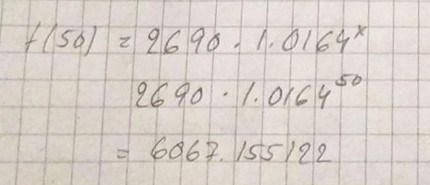 f(50) = 2690 · 1.0164^x
2690 · 1.0164^50
= 6067.155122